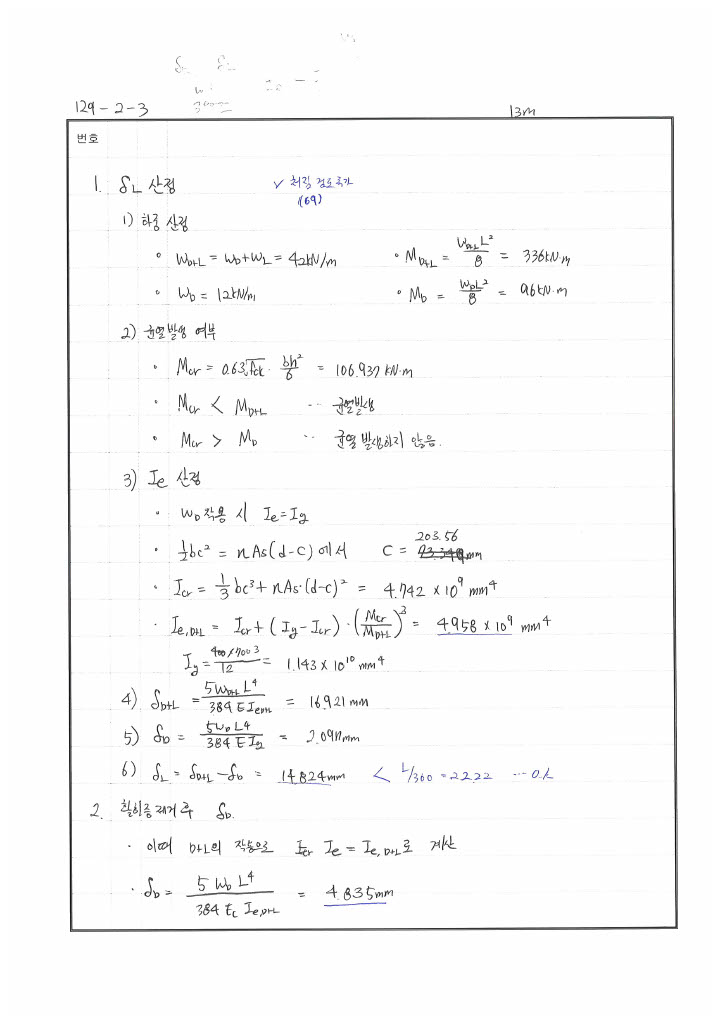 129 - 2 - 3
13m
번호
1. δL 산정 ✓ 처짐 검토 추가
(69)
1) 하중 산정
• WD+L = WD + WL = 42kN/m • MD+L = WD+L L²/8 = 336kN·m
• WD = 12kN/m • MD = WDL²/8 = 96kN·m
2) 균열발생 여부
• Mcr = 0.63√fck · bh²/6 = 106.937 kN·m
• Mcr < MD+L ··· 균열발생
• Mcr > MD ··· 균열 발생하지 않음.
3) Ie 산정
• WD 작용 시 Ie = Ig
• ½bc² = nAs(d-c) 에서 C = 203.56 mm
• Icr = 1/3 bc³ + nAs·(d-c)² = 4.742 × 10⁹ mm⁴
• Ie,D+L = Icr + (Ig - Icr) · (Mcr/MD+L)³ = 4.958 × 10⁹ mm⁴
Ig = 400×700³/12 = 1.143 × 10¹⁰ mm⁴
4) δD+L = 5WD+L L⁴/384 E Ie,D+L = 16.921 mm
5) δD = 5WD L⁴/384 E Ig = 2.097mm
6) δL = δD+L - δD = 14.824mm < L/360 = 22.22 ··· O.K
2. 활하중 제거 후 δD.
• 이때 D+L의 작용으로 Ie = Ie,D+L로 계산
• δD = 5 WD L⁴/384 Ec Ie,D+L = 4.835mm